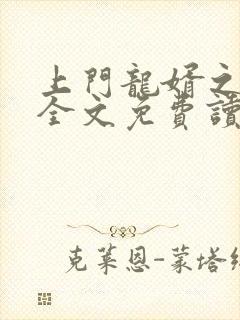 上門龍婿之
全文免費讀
克萊恩-蒙塔